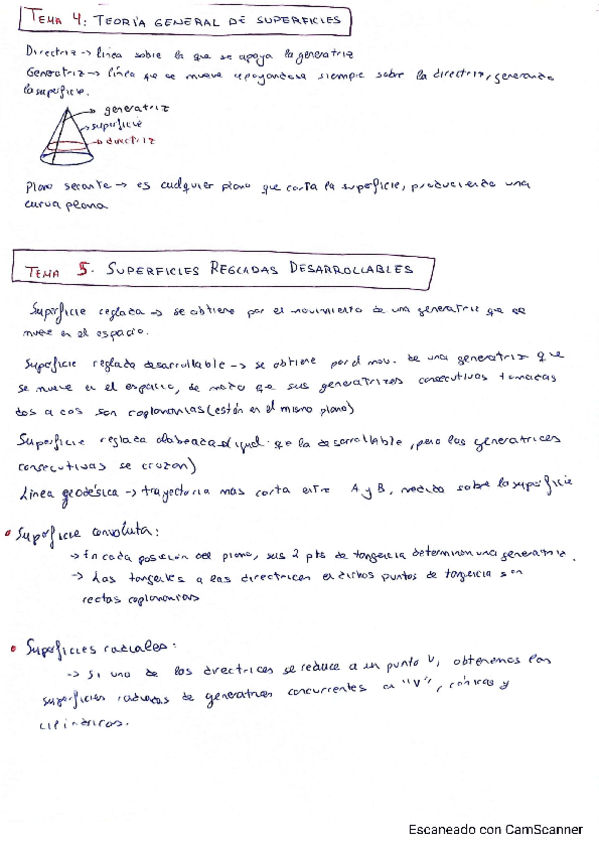 TEMA 4: TEORÍA GENERAL DE SUPERFICIES
Directriz → línea sobre la que se apoya la generatriz
Generatriz → línea que se mueve apoyandose siempre sobre la directriz, generando
la superficie.
→ generatriz
→ superficie
→ directriz
Plano secante → es cualquier plano que corta la superficie, produciendo una
curva plana
TEMA 5. SUPERFICIES REGLADAS DESARROLLABLES
Superficie reglada → se obtiene por el movimiento de una generatriz que se
mueve en el espacio.
Superficie reglada desarrollable → se obtiene por el mov. de una generatriz que
se mueve en el espacio, de modo que sus generatrices consecutivas tomadas
dos a dos son coplanarias (están en el mismo plano)
Superficie reglada alabeada igual que la desarrollable, pero las generatrices
consecutivas se cruzan)
Línea geodésica → trayectoria mas corta entre A y B, medida sobre la superficie
• Superficie convoluta:
→ En cada posición del plano, sus 2 pts de tangencia determinan una generatriz.
→ Las tangentes a las directrices en dichos puntos de tangencia son
rectas coplanarias
• Superficies radiales:
→ Si una de las directrices se reduce a un punto V, obtenemos las
superficies radiadas de generatrices concurrentes en "V", cónicas y
cilíndricas.
Escaneado con CamScanner